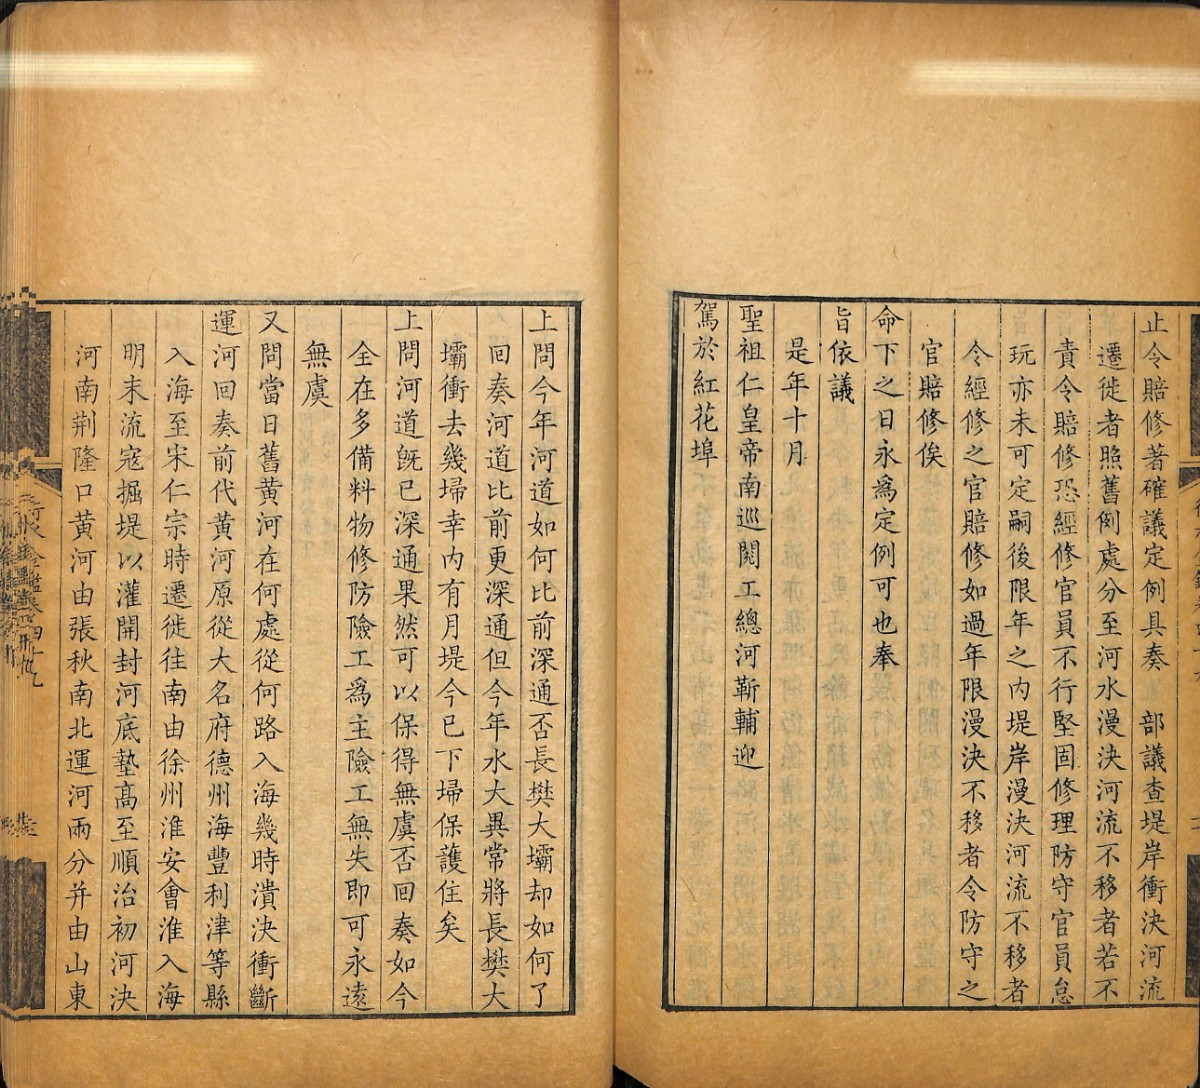 止令賠修著確議定例具奏　部議查堤岸衝決河流
遷徙者照舊例處分至河水漫決河流不移者若不
責令賠修恐經修官員不行堅固修理防守官員怠
玩亦未可定嗣後限年之內堤岸漫決河流不移者
令經修之官賠修如過年限漫決不移者令防守之
官賠修俟
命下之日永為定例可也奉
旨依議
是年十月
聖祖仁皇帝南巡閱工總河靳輔迎
駕於紅花埠
上問今年河道如何比前深通否長樊大壩却如何了
回奏河道比前更深通但今年水大異常將長樊大
壩衝去幾埽幸內有月堤今已下埽保護住矣
上問河道旣已深通果然可以保得無虞否回奏如今
全在多備料物修防險工爲主險工無失即可永遠
無虞
又問當日舊黃河在何處從何路入海幾時潰決衝斷
運河回奏前代黃河原從大名府德州海豐利津等縣
入海至宋仁宗時遷徙往南由徐州淮安會淮入海
明末流寇掘堤以灌開封河底墊高至順治初河決
河南荆隆口黃河由張秋南北運河兩分并由山東
行水金鑑卷四十九